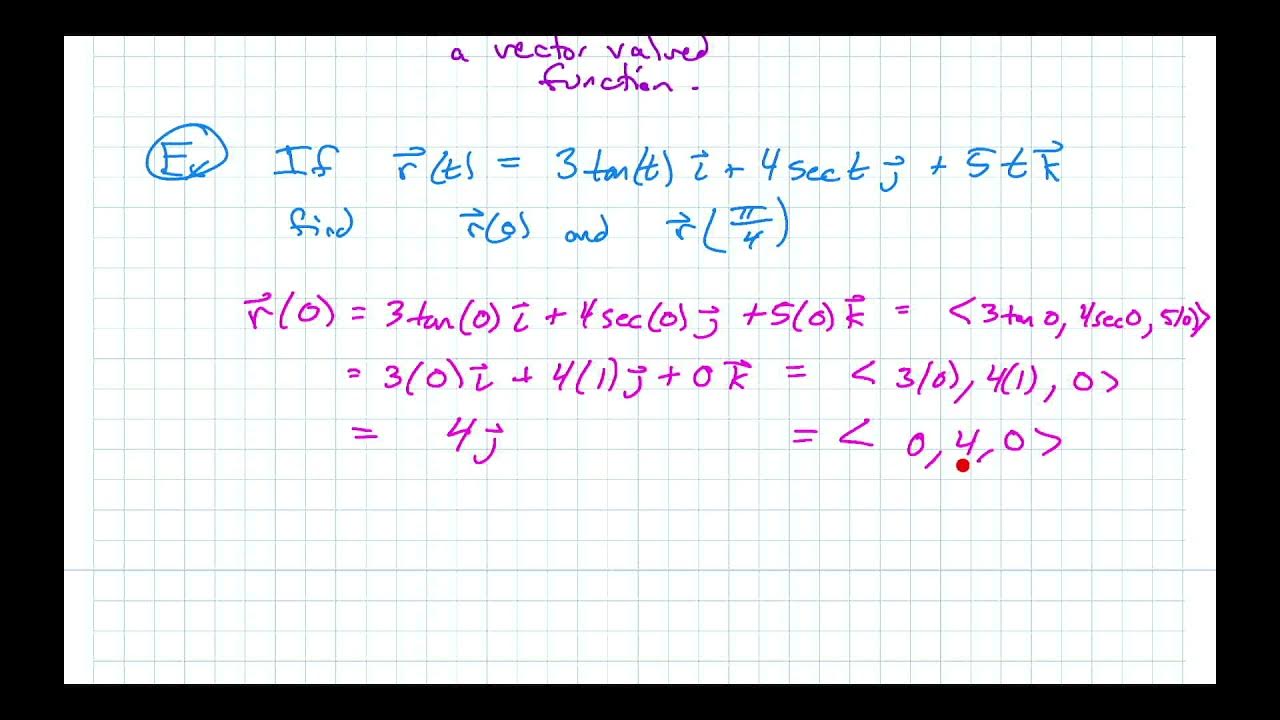 a vector valued
function.
Ex If r⃗(t) = 3 tan(t) i⃗ + 4 sec t j⃗ + 5 t k⃗
find r⃗(0) and r⃗(π/4)
r⃗(0) = 3 tan(0) i⃗ + 4 sec(0) j⃗ + 5(0) k⃗ = <3 tan 0, 4 sec 0, 5(0)>
= 3(0) i⃗ + 4(1) j⃗ + 0 k⃗ = < 3(0), 4(1), 0>
= 4 j⃗ = < 0, 4, 0>